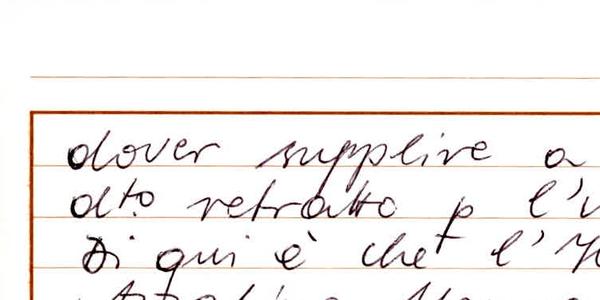 dover supplire a
dto retratto p l'
Di qui è che l'